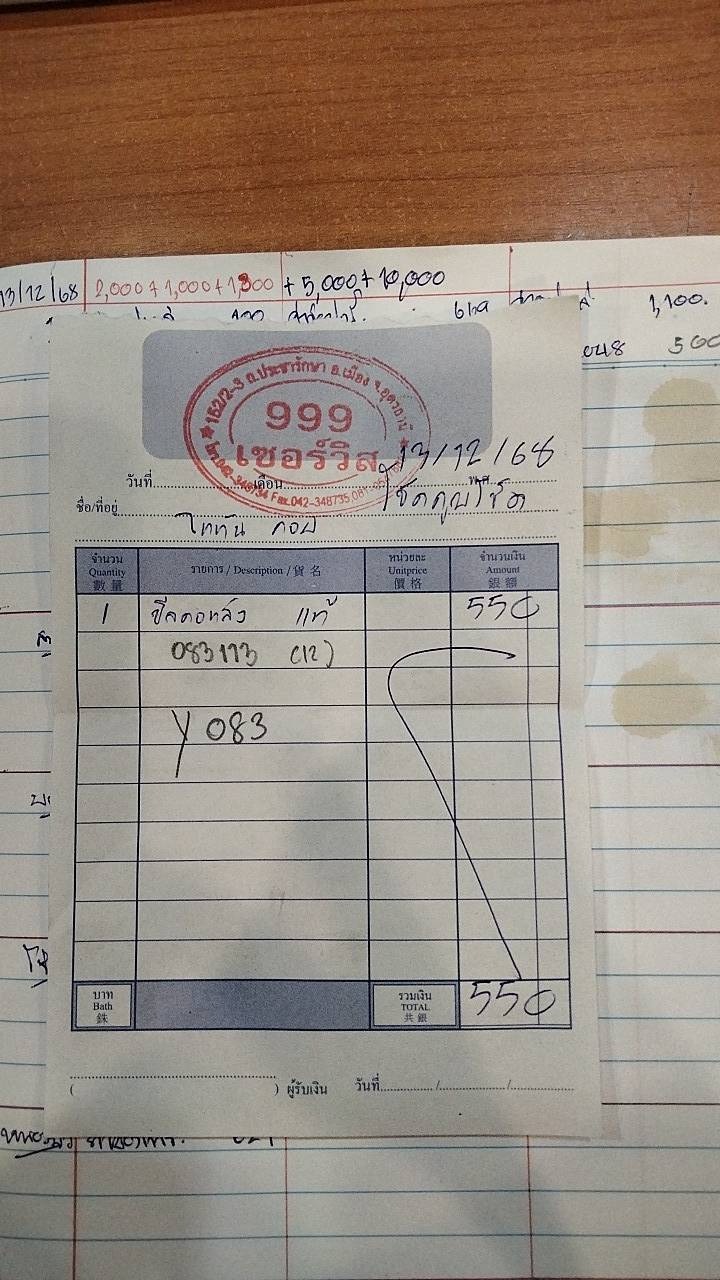 13/12/68 2,000+1,000+1,300 +5,000+10,000
1,100.
048 500
152/2-3 ถ.ประชารักษา อ.เมือง จ.อุดรธานี
999
เซอร์วิส
โทร.042-348734 Fax.042-348735,081-
13/12/68
วันที่ เดือน พ.ศ.
โชคคูณโชค
ชื่อ/ที่อยู่
ไททัน คอป
จำนวน รายการ / Description / 貨 名 หน่วยละ จำนวนเงิน
Quantity Unitprice Amount
數 量 價 格 銀 額
1 ซีลคอหลัง แท้ 550
083113 (12)
Y 083
บาท รวมเงิน
Bath TOTAL 550
銖 共 銀
( ) ผู้รับเงิน วันที่ / /